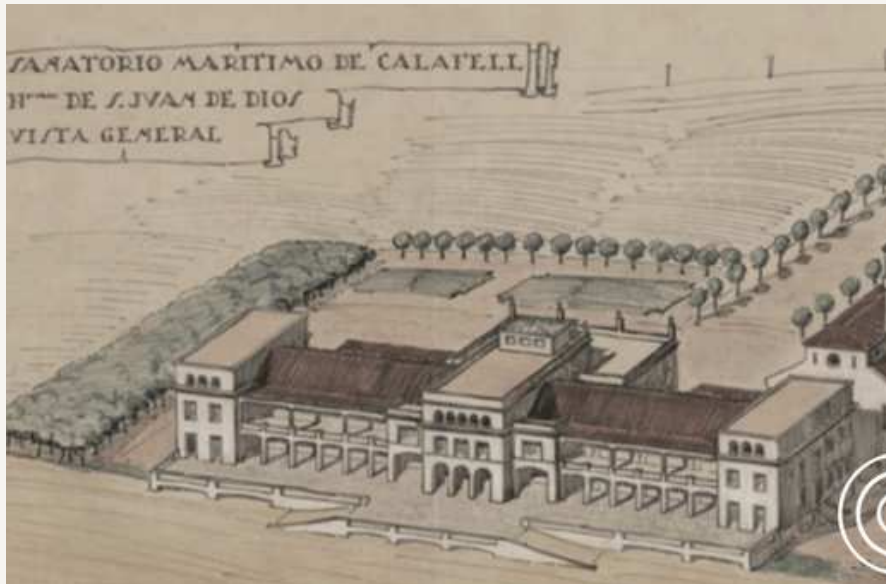 SANATORIO MARITIMO DE CALAFELL
Hnos DE S. JVAN DE DIOS
VISTA GENERAL